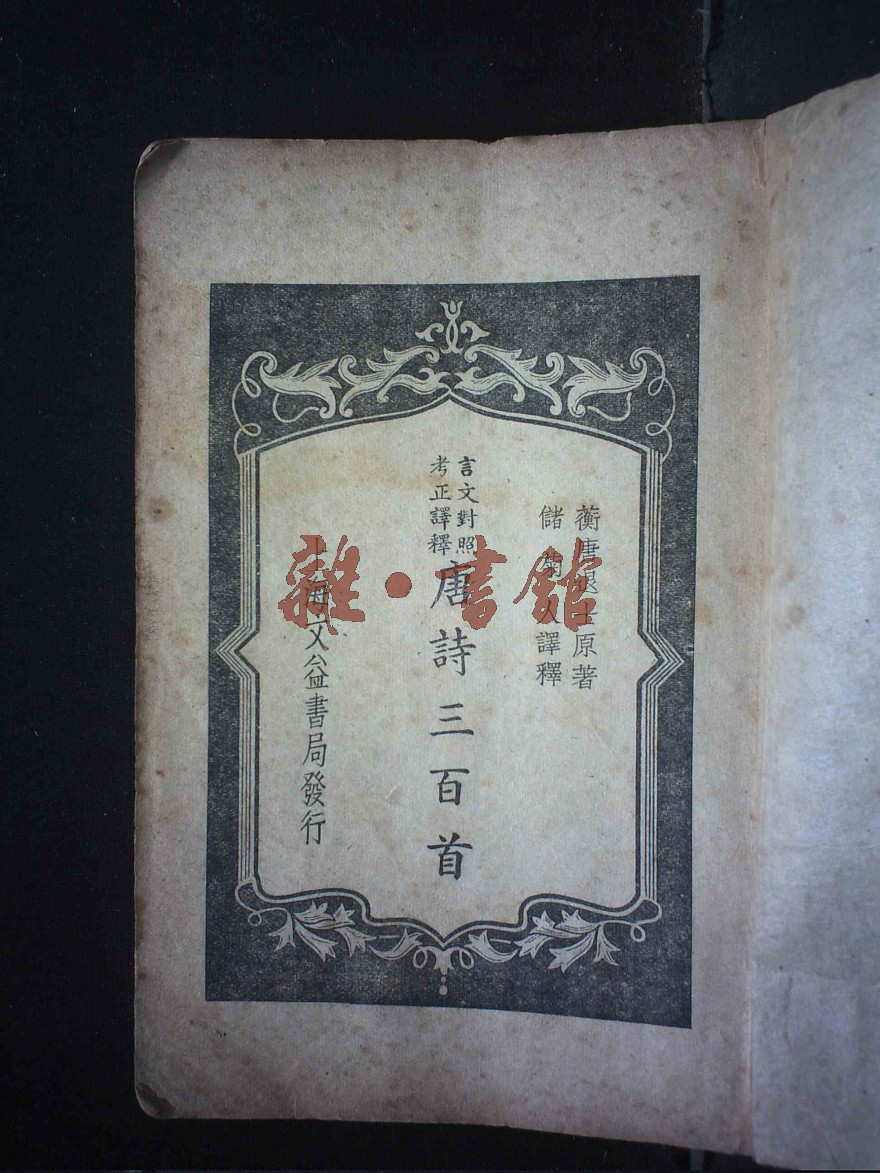 蘅唐退士原著
儲菊人譯釋
言文對照
考正譯釋
唐詩三百首
上海文益書局發行
雜·書館